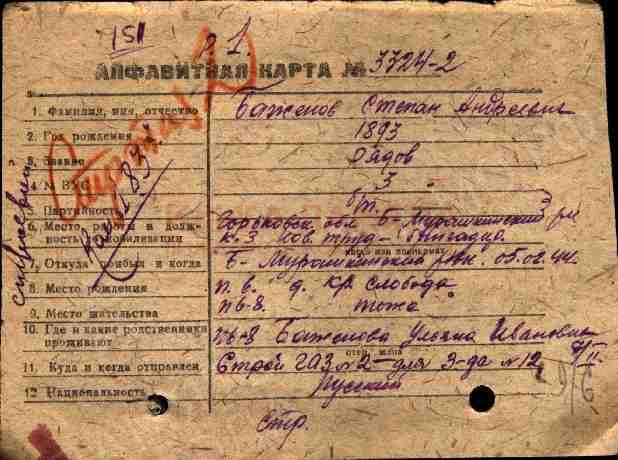 151
р. 1.
АЛФАВИТНАЯ КАРТА № 3724-2
1. Фамилия, имя, отчество Баженов Степан Андреевич
2. Год рождения 1893
3. Звание Рядов
4. № ВУС 3
5. Партийность б/п.
6. Место, работы и долж- Горьковск обл Б-Мурашкинский р-н
ность до мобилизации к-з Нов. труд-бригадир.
7. Откуда прибыл и когда Б-Мурашкинский рвк. 05.02.44.
8. Место рождения п. 6. д. Кр слобода
9. Место жительства п6-8. тоже
10. Где и какие родственники п6-8 Баженова Ульяна Ивановна
проживают
отец жена
11. Куда и когда отправлен Строй ГАЗ №2-для З-да №12 7/II
12 Национальность Русский
Стр.